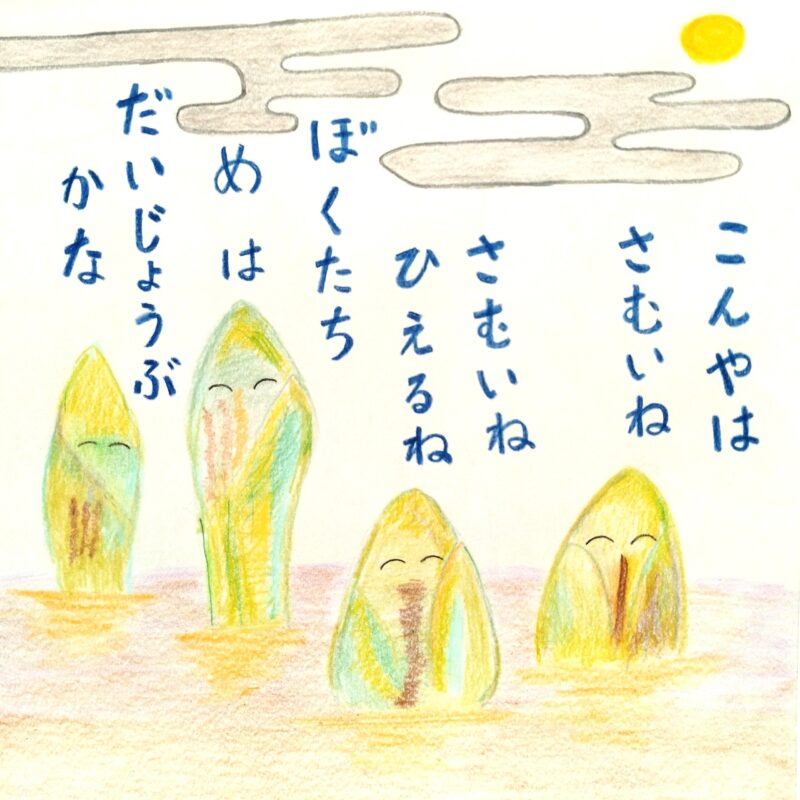 こんやは
さむいね
さむいね
ひえるね
ぼくたち
めは
だいじょうぶ
かな